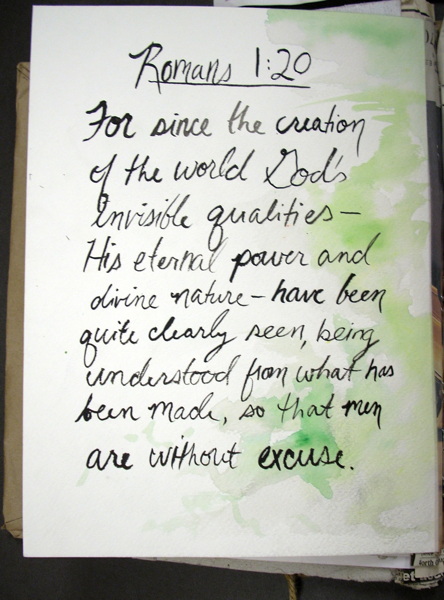 Romans 1:20
For since the creation
of the world God's
invisible qualities—
His eternal power and
divine nature—have been
quite clearly seen, being
understood from what has
been made, so that men
are without excuse.